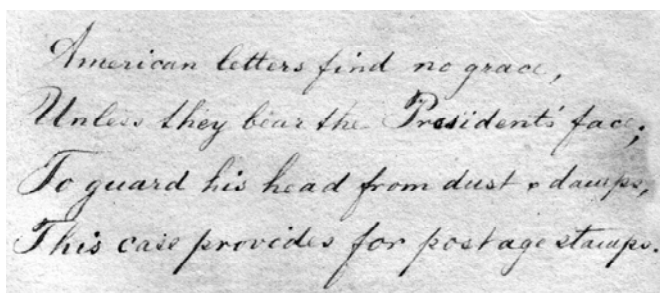 American letters find no grace,
Unless they bear the President's face;
To guard his head from dust & damps,
This case provides for postage stamps.